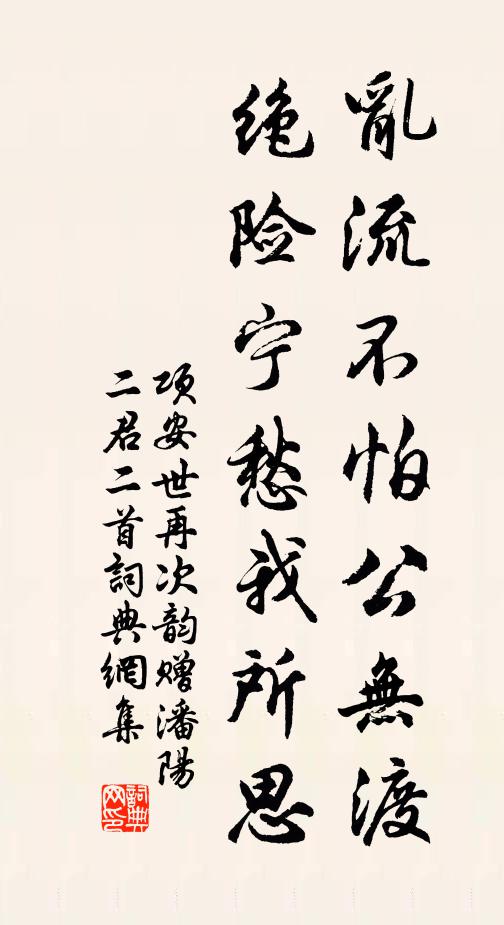 亂流不怕公無渡
绝险宁愁我所思
项安世再次韵赠潘陽
二君二首詞典網集
詞典
网印